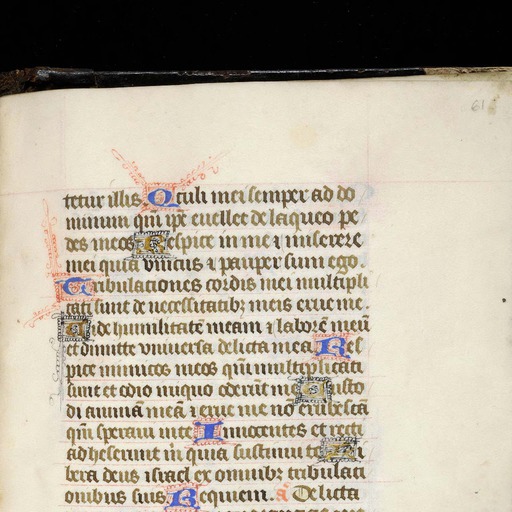 61
tetur illis Oculi mei semper ad do
minum qm ip̄e euellet de laqueo pe
des meos Respice in me ⁊ miserere
mei quia vnicus ⁊ pauper sum ego
Tribulationes cordis mei multipli
cati sunt de necessitatibꝫ meis erue me
Uide humilitatē meam ⁊ laborē meū
et dimitte vniuersa delicta mea Res
pice inimicos meos qm̄ multiplicati
sunt et odio iniquo oderūt me Custo
di animā meā ⁊ erue me nō erubescā
qm̄ speraui in te Innocentes et recti
adheserunt m̄ quia sustinui te Li
bera deus israel ex omnibꝫ tribulati
onibus suis Requiem. a᷎ Delicta